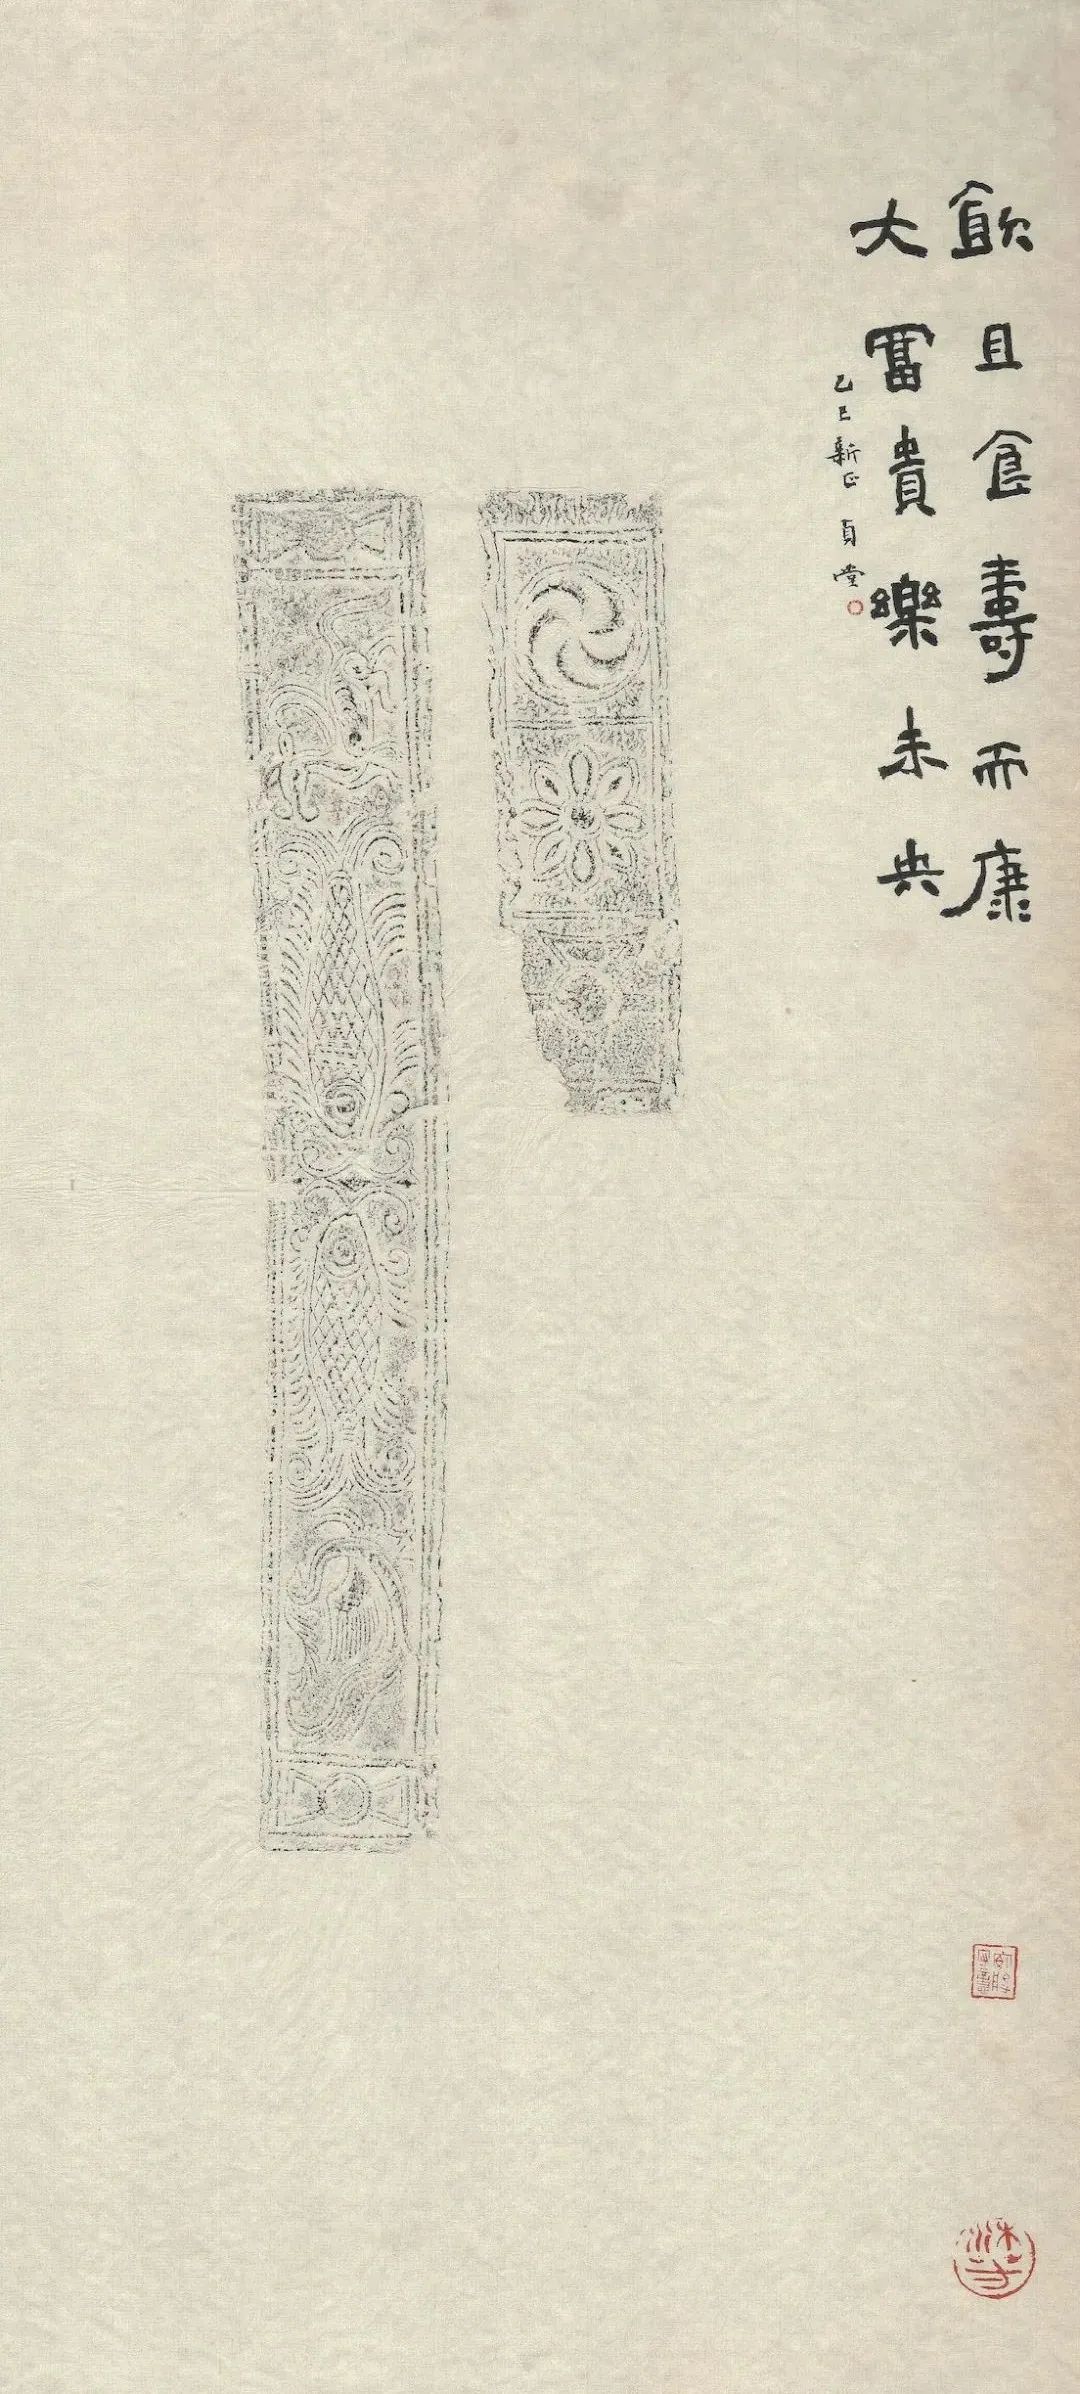 飲且食壽而康
大富貴樂未央
乙巳新正貞堂